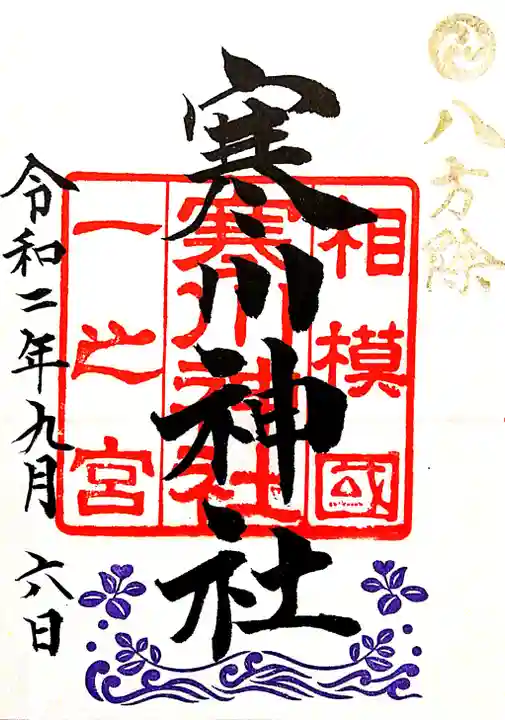 八方除
相模國
寒川神社
一之宮
寒川神社
令和二年九月六日